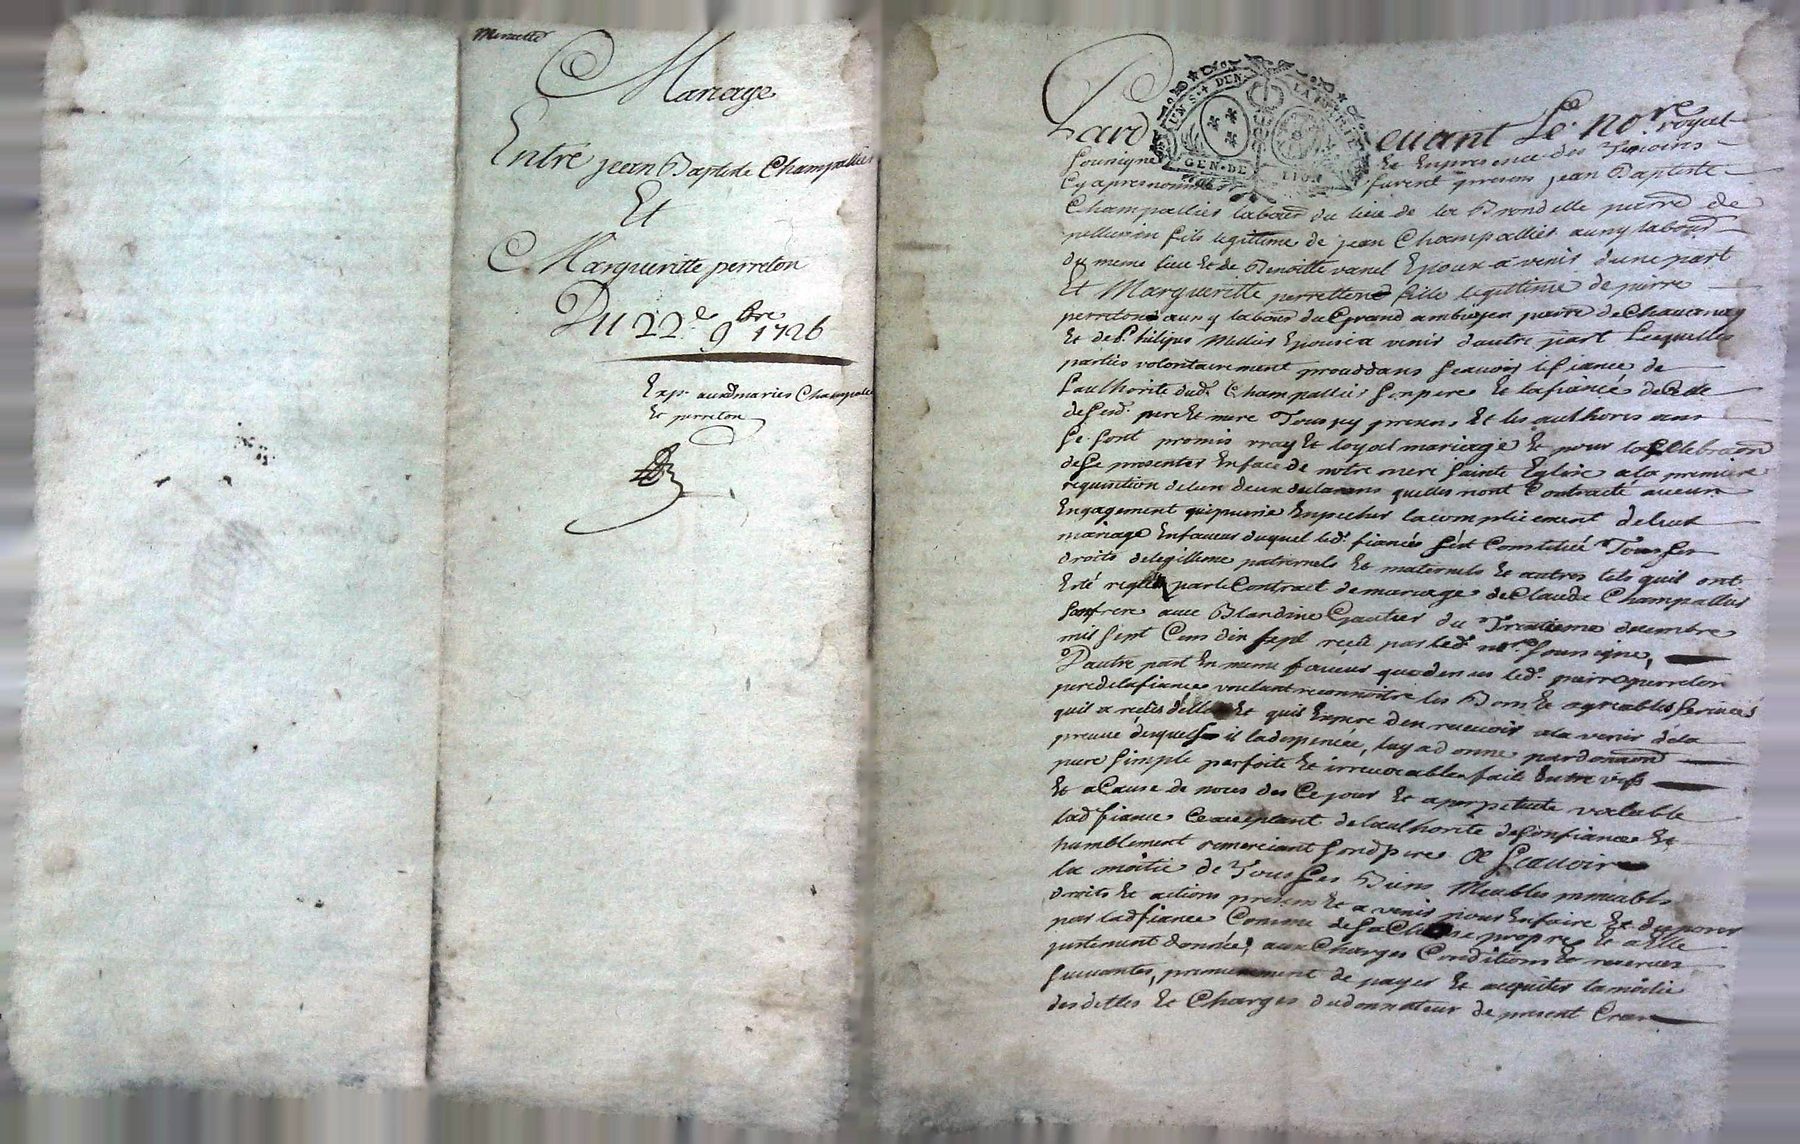 Minutte
Mariage
Entre jean Baptiste Champallier
Et
Margueritte perreton
Du 22e. 9bre 1726
Exp. auxd. maries Champallier
Et perreton
Pard evant Le. nore. royal
sousigne Et Enpresence des Temoins
Cyapres nommes furent presens jean Baptiste
Champallier labour du lieu de la Brondelle parre de
pellussin fils legittime de jean Champallier aussy labour
du meme lieu Et de Benoitte vanel Epoux a venir dune part
Et Margueritte perrettone fille legittime de pierre
perreton aussy labour du Grand ambuyen parre de Chavannay
Et de Philipe Mellier Epouse a venir dautre part Lesquelles
parties volontairement proceddans scavoir le fiance de
Lauthorite dud. Champallier son pere Et la fiancée de Celle
de sesd. pere Et mere Tous icy presens Et les authorisans
se sont promis vray Et loyal mariage Et pour la Cellebraon
de se presenter En face de notre mere sainte Eglise a la premiere
requisition de lun deux declarans quelles nont Contracté aucun
Engagement qui puisse Enpecher lacomplicement de leur
mariage En faveur duquel led. fiancé sest Constitué Tous ses
droits de legittime paternels Et maternels Et autres tels quil ont
Esté reglés par le Contrait de mariage de Claude Champallier
son frere avec Blandine Gautier du Treizieme decembre
mil sept Cens dix sept receu par led. nore. sousigne,
Dautre part En meme faveur que dessus led. pierre perreton
pere de la fiancée voulant reconnoitre les Bons Et agreables services
quil a recüs delle Et quil Espere den recevoir a la venir de la
preuve desquels il la dispencée, luy a donne par donnaon
pure simple parfaite Et irrevocable faite Entre vifs
Et a Cause de noces des Ce jour Et a perpetuité valable
lad fiancée Ce acceptant de lauthorite de son fiancé Et
humblement remerciant sond pere Et Scavoir
la moitié de Tous ses Biens Meubles immeubles
droits Et actions presens Et a venir pour En faire Et disposer
par lad fiancée Comme de sa Chose propre Et a Elle
justement donnée, aux Charges Conditions Et reserves
suivantes, premierement de payer Et acquiter la moitié
des dettes Et Charges du donnateur de present Crees